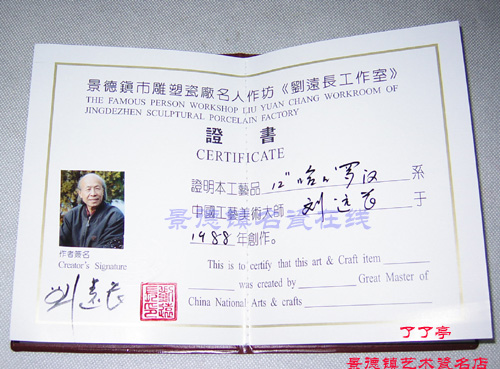 景德鎮市雕塑瓷廠名人作坊《劉遠長工作室》
THE FAMOUS PERSON WORKSHOP LIU YUAN CHANG WORKROOM OF
JINGDEZHEN SCULPTURAL PORCELAIN FACTORY
證書
CERTIFICATE
證明本工藝品 12" 哈哈罗汉 系
中國工藝美術大師 刘远长 于
景德镇名瓷在线
1988 年創作。
This is to certify that this art & Craft item
was created by Great Master of
China National Arts & crafts
作者簽名
Creator's Signature
刘远长
劉遠長印
了了亭
景德镇艺术瓷名店